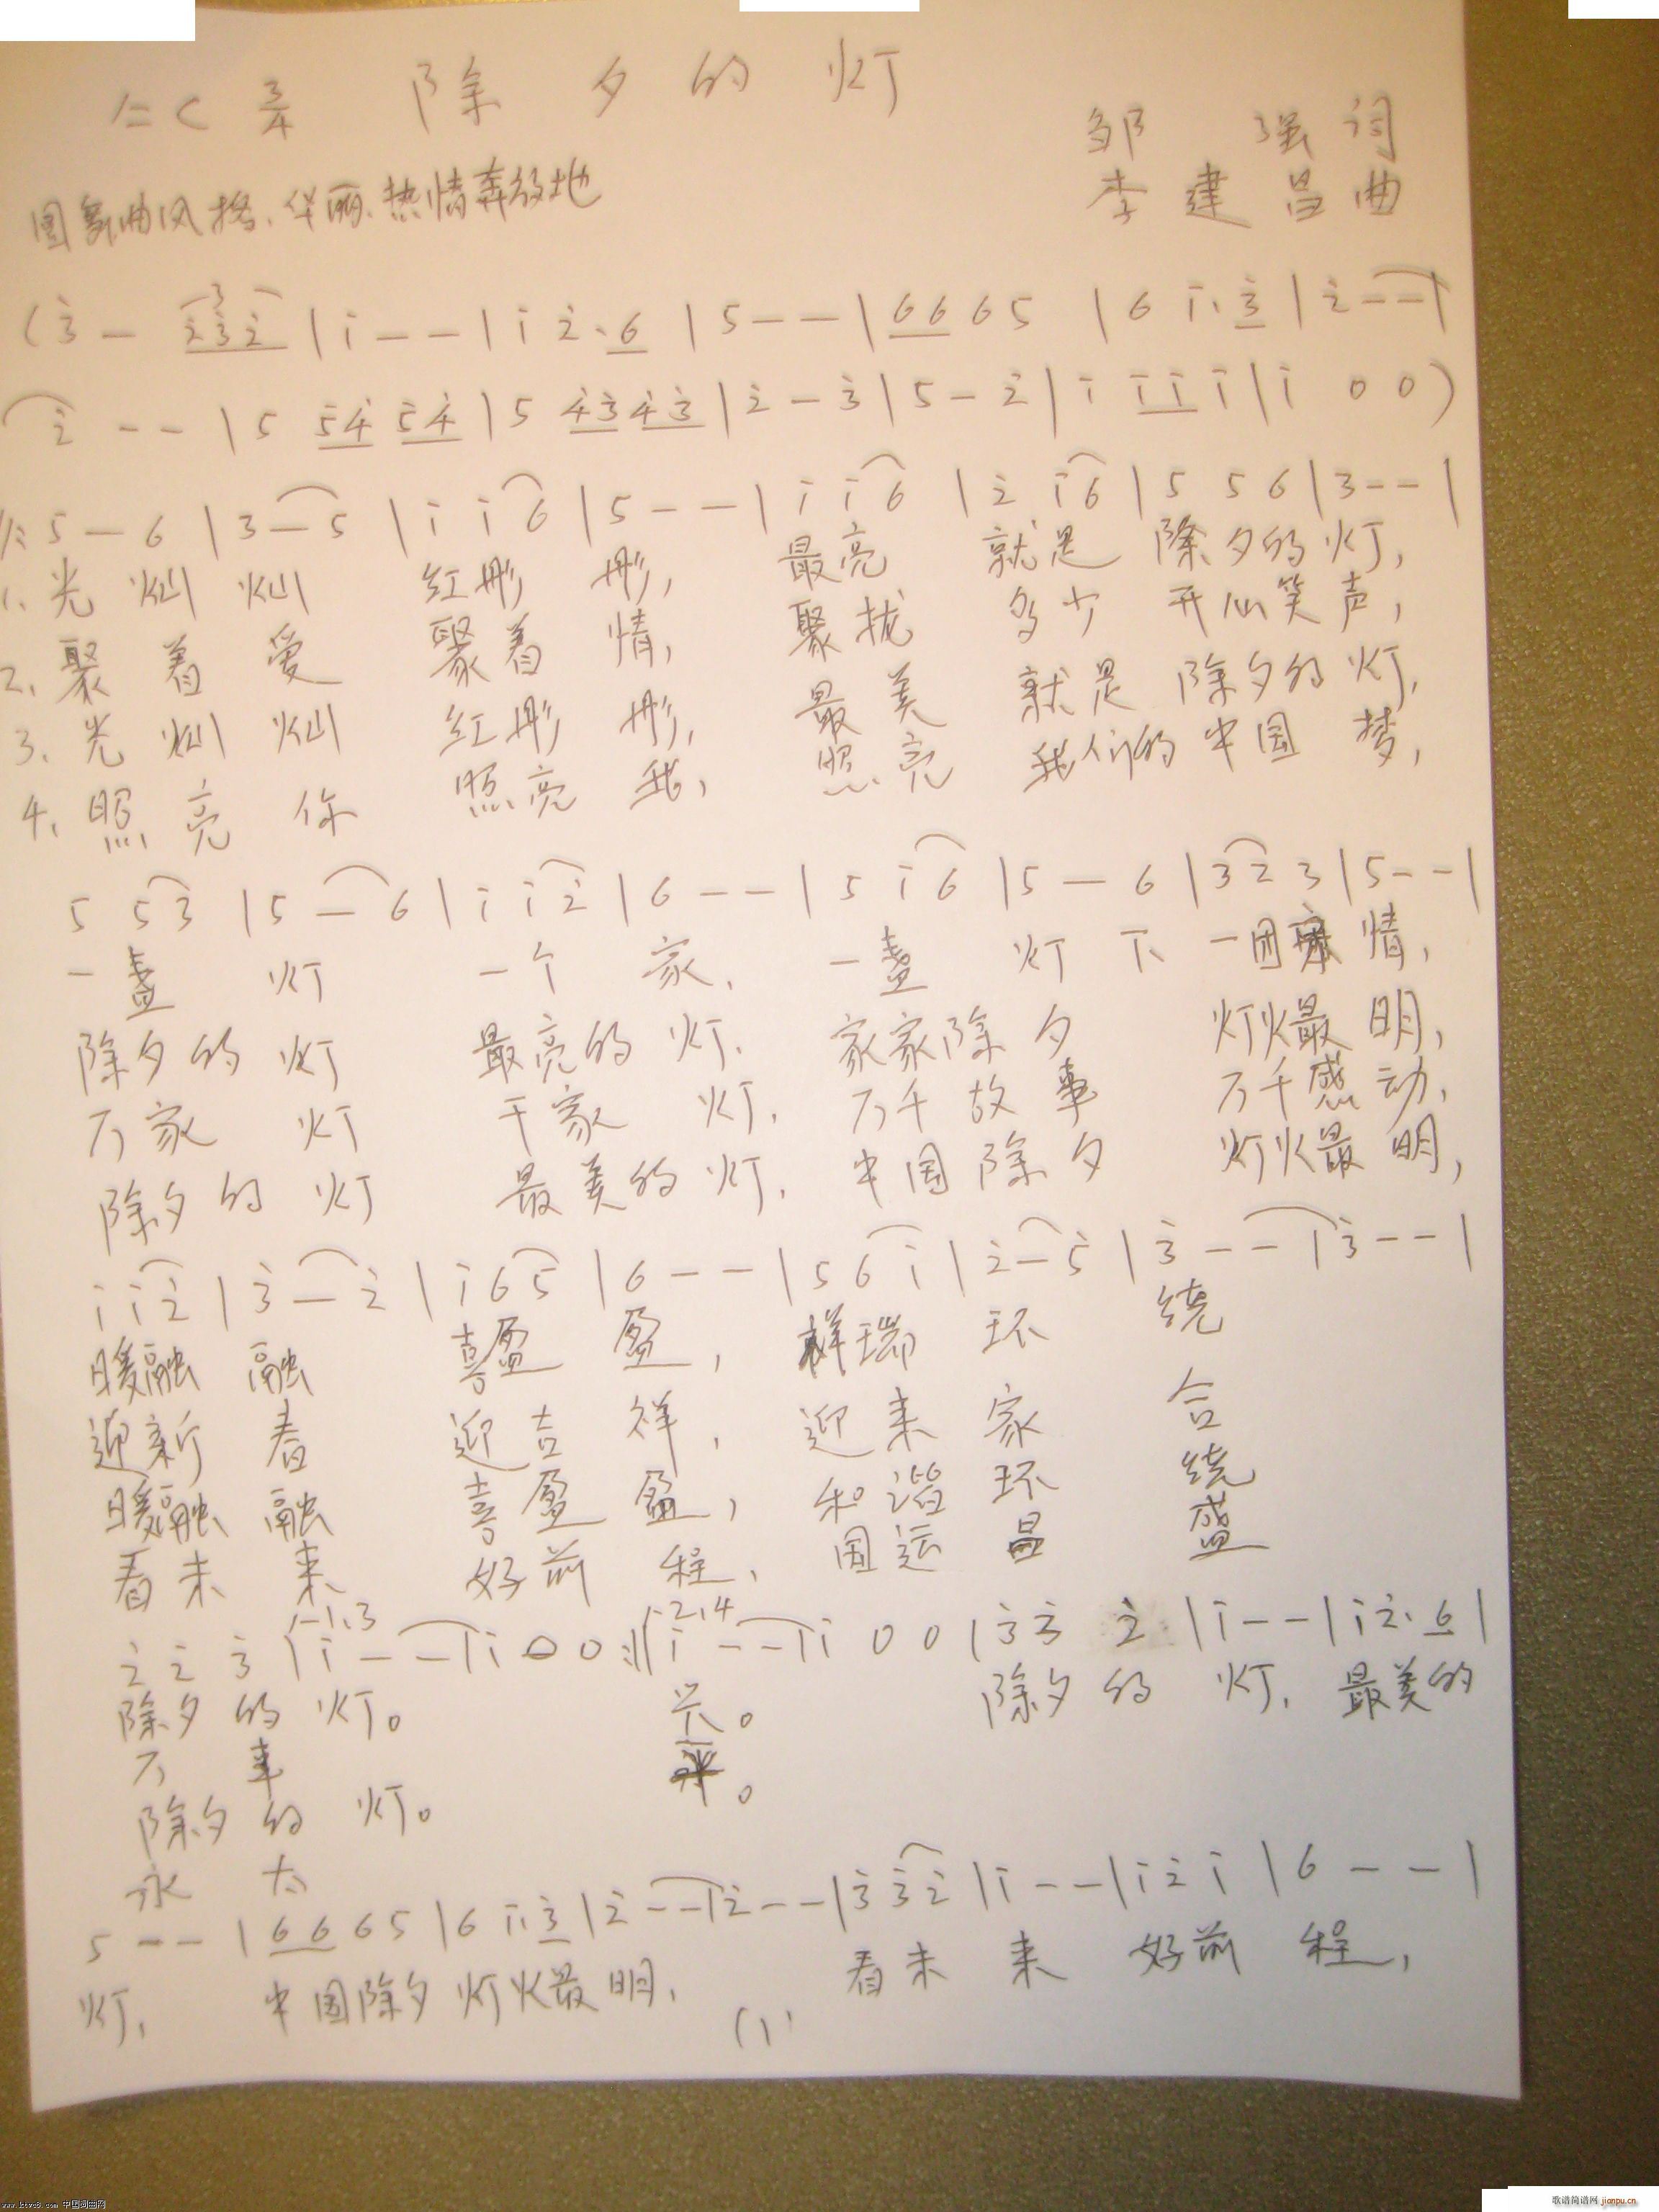 1=C 3/4 除夕的灯
邹强词
圆舞曲风格、华丽、热情奔放地
李建昌曲
(3̇ — 2̇3̇2̇ | 1̇ — — | 1̇ 2̇. 6 | 5 — — | 6 6 6 5 | 6 1̇. 3̇ | 2̇ — — |
2̇ — — | 5 5̇4̇ 5̇4̇ | 5 4̇3̇ 4̇3̇ | 2̇ — 3̇ | 5 — 2̇ | 1̇ 1̇ 1̇ 1̇ | 1̇ 0 0)
‖: 5 — 6 | 3 — 5 | 1̇ 1̇ 6 | 5 — — | 1̇ 1̇ 6 | 2̇ 1̇ 6 | 5 5 6 | 3 — — |
1、光灿灿 红彤彤, 最亮 就是 除夕的灯,
2、聚着爱 聚着情, 聚拢 多少 开心笑声,
3、光灿灿 红彤彤, 最美 就是 除夕的灯,
4、照亮你 照亮我, 照亮 我们的中国梦,
5 5 3 | 5 — 6 | 1̇ 1̇ 2̇ | 6 — — | 5 1̇ 6 | 5 — 6 | 3 2 3 | 5 — — |
一盏 灯 一个 家、 一盏 灯下 一团 情,
除夕的灯 最亮的灯、 家家除夕 灯火最明,
万家 灯 千家 灯、 万千故事 万千感动,
除夕的灯 最美的灯、 中国除夕 灯火最明,
1̇ 1̇ 2̇ | 3̇ — 2̇ | 1̇ 6 5 | 6 — — | 5 6 1̇ | 2̇ — 5̇ | 3̇ — — | 3̇ — — |
暖融融 喜盈盈, 祥瑞环绕
迎新春 迎吉祥, 迎来家合
暖融融 喜盈盈, 和谐环绕
看未来 好前程、 国运昌盛
1.3 2.4
2̇ 2̇ 3̇ | 1̇ — — | 1̇ 0 0 :‖ 1̇ — — | 1̇ 0 0 | 3̇ 3̇ 2̇ | 1̇ — — | 1̇ 2̇. 6 |
除夕的灯。 兴。 除夕的灯、最美的
万事 平。
除夕的灯。
永太
5 — — | 6 6 6 5 | 6 1̇. 3̇ | 2̇ — — | 2̇ — — | 3̇ 3̇ 2̇ | 1̇ — — | 1̇ 2̇ 1̇ | 6 — — |
灯, 中国除夕灯火最明、 看未来 好前程,
(1)
www.ktvc8.com 中国词曲网
歌谱简谱网 jianpu.cn